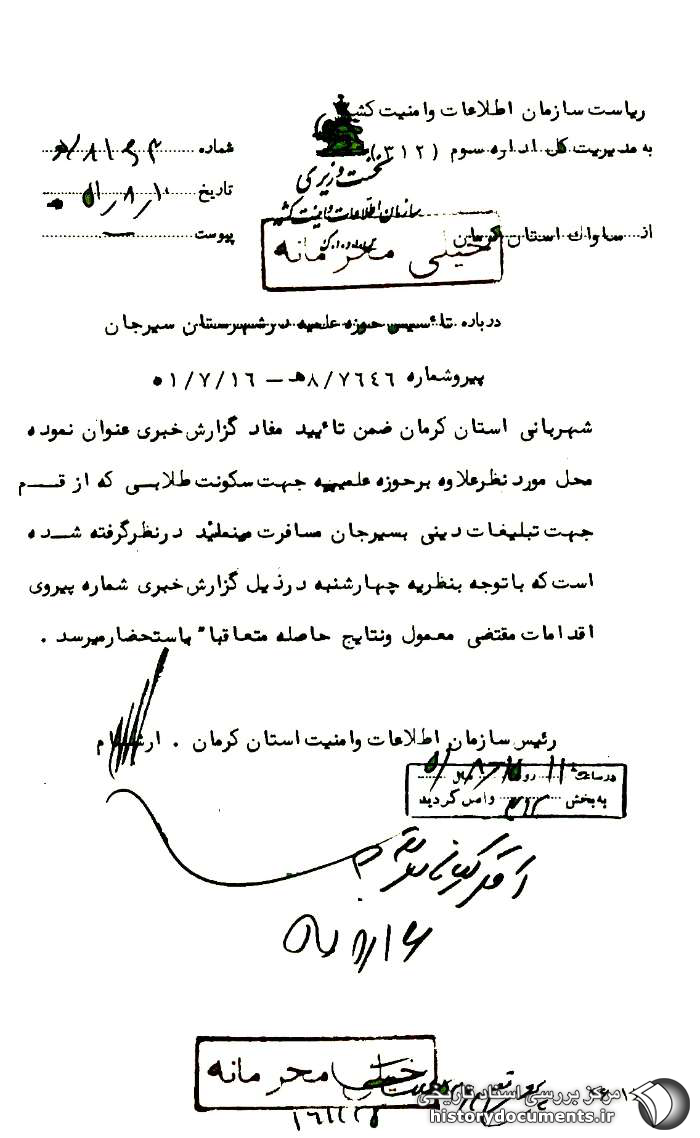 ریاست سازمان اطلاعات وامنیت کشور
به مدیریت کل اداره سوم (۳۱۲)
از ساواک استان کرمان
نخست وزیری
سازمان اطلاعات و امنیت کشور
شماره
تاریخ ۵۱/۸/۱۰
پیوست —
خیلی محرمانه
درباره تاٴسیس حوزه علمیه در شهرستان سیرجان
پیروشماره ۸/۷۶۴۶ هـ – ۵۱/۷/۱۶
شهربانی استان کرمان ضمن تاٴیید مفاد گزارش خبری عنوان نموده
محل مورد نظرعلاوه برحوزه علمیه جهت سکونت طلابی که از قم
جهت تبلیغات دینی بسیرجان مسافرت مینمایند درنظرگرفته شده
است که باتوجه بنظریه چهارشنبه درذیل گزارش خبری شماره پیروی
اقدامات مقتضی معمول ونتایج حاصله متعاقبا" باستحضارمیرسد .
رئیس سازمان اطلاعات وامنیت استان کرمان . ارشام
در ساعت ۱۱ روز سال
به بخش ۳۱۲ واصل گردید
خیلی محرمانه
مرکز بررسی اسناد تاریخی
historydocuments.ir